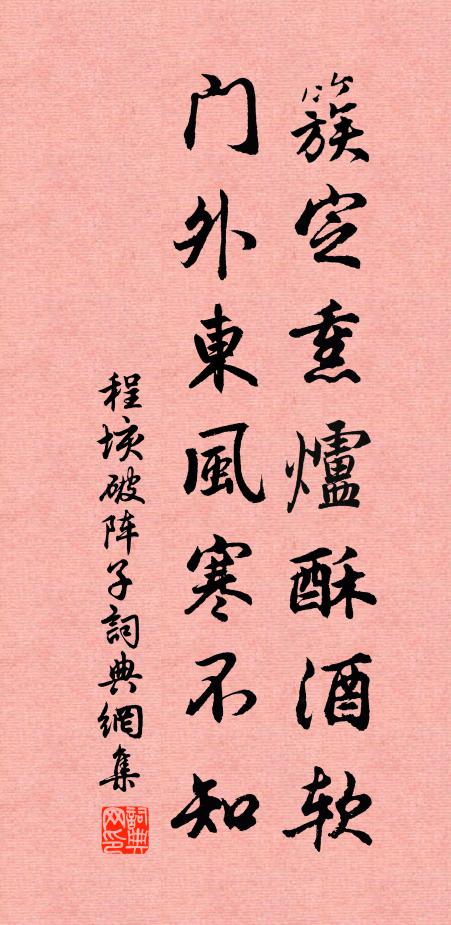 簇定熏爐酥酒软
门外東風寒不知
程垓破阵子詞典網集
詞典网印